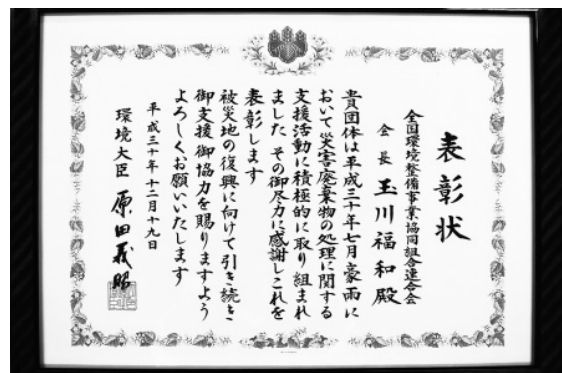 表彰状
全国環境整備事業協同組合連合会
会長 玉川福和殿
貴団体は平成三十年七月豪雨に
おいて災害廃棄物の処理に関する
支援活動に積極的に取り組まれ
ました その御尽力に感謝しこれを
表彰します
被災地の復興に向けて引き続き
御支援 御協力を賜りますよう
よろしくお願いいたします
平成三十年十二月十九日
環境大臣 原田義昭